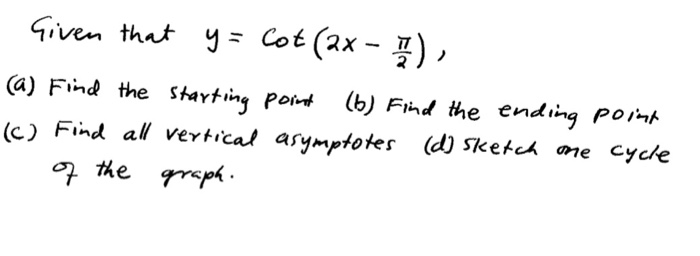 Given that y = Cot (2x - π/2),
(a) Find the starting point (b) Find the ending point
(c) Find all vertical asymptotes (d) sketch one cycle
of the graph.